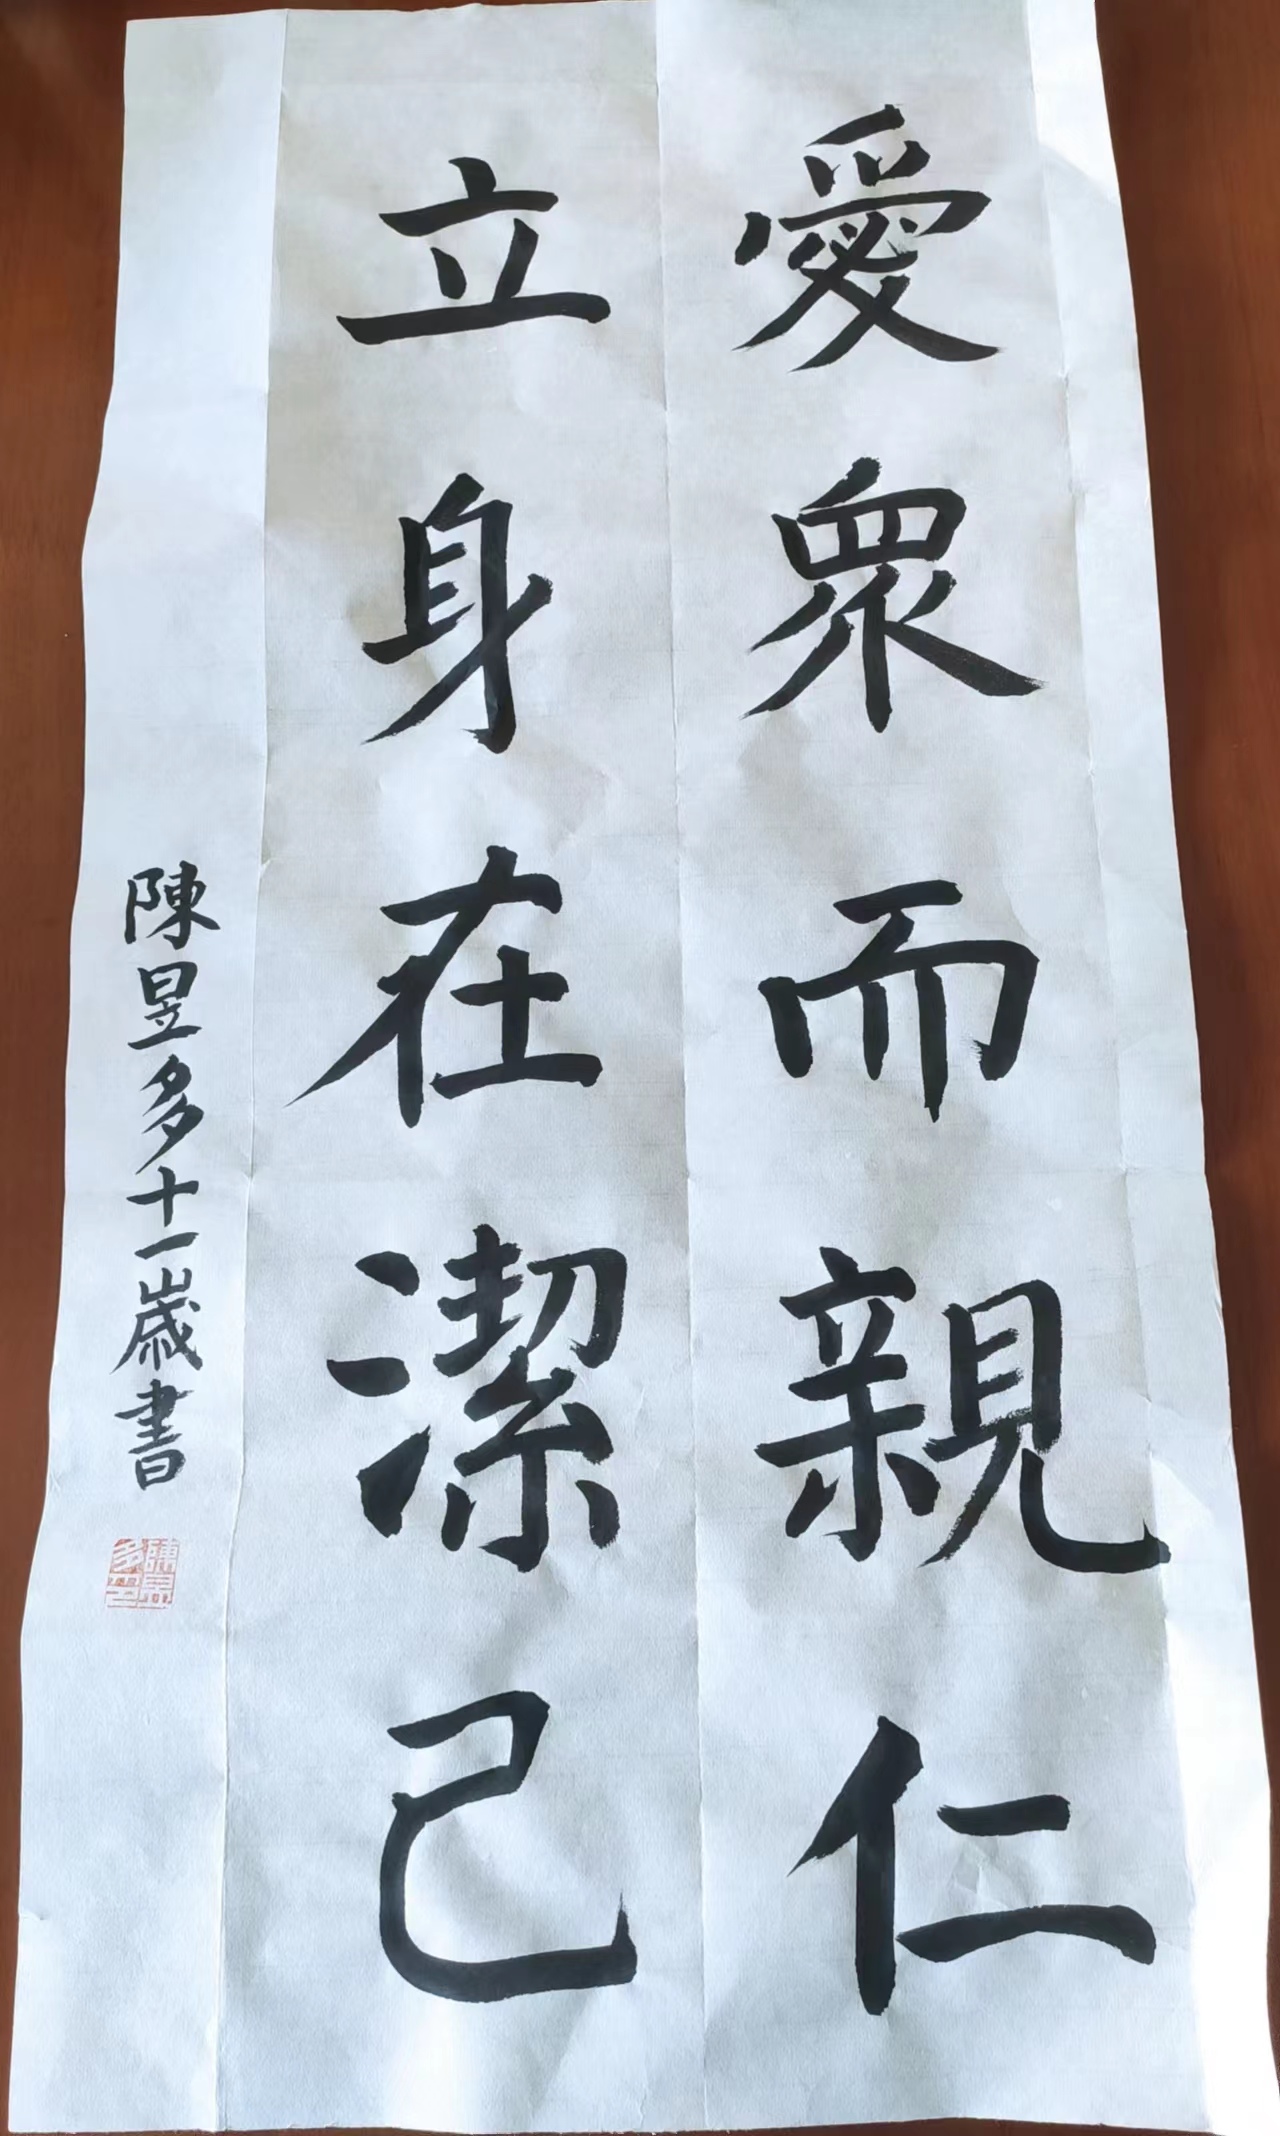 愛眾而親仁
立身在潔己
陳昱多十一歲書